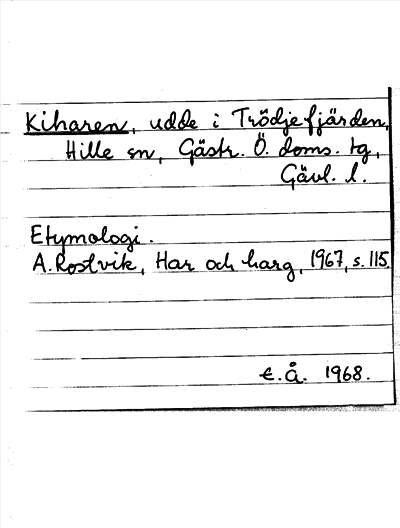 Kiharen, udde i Trödjefjärden,
Hille sn, Gästr. Ö. doms. tg,
Gävl. l.
Etymologi.
A. Rostvik, Har och harg, 1967, s. 115.
E.Å. 1968.